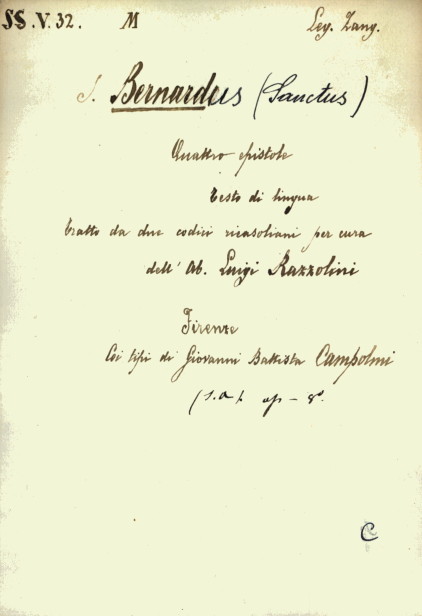 SS.V.32. M Leg. Zang.
S. Bernardus (Sanctus)
Quattro epistole
Testo di lingua
Tratto da due codici ricasoliani per cura
dell' Ab. Luigi Razzolini
Firenze
Coi tipi di Giovanni Battista Campolmi
(s.a.) op - 8º.
C